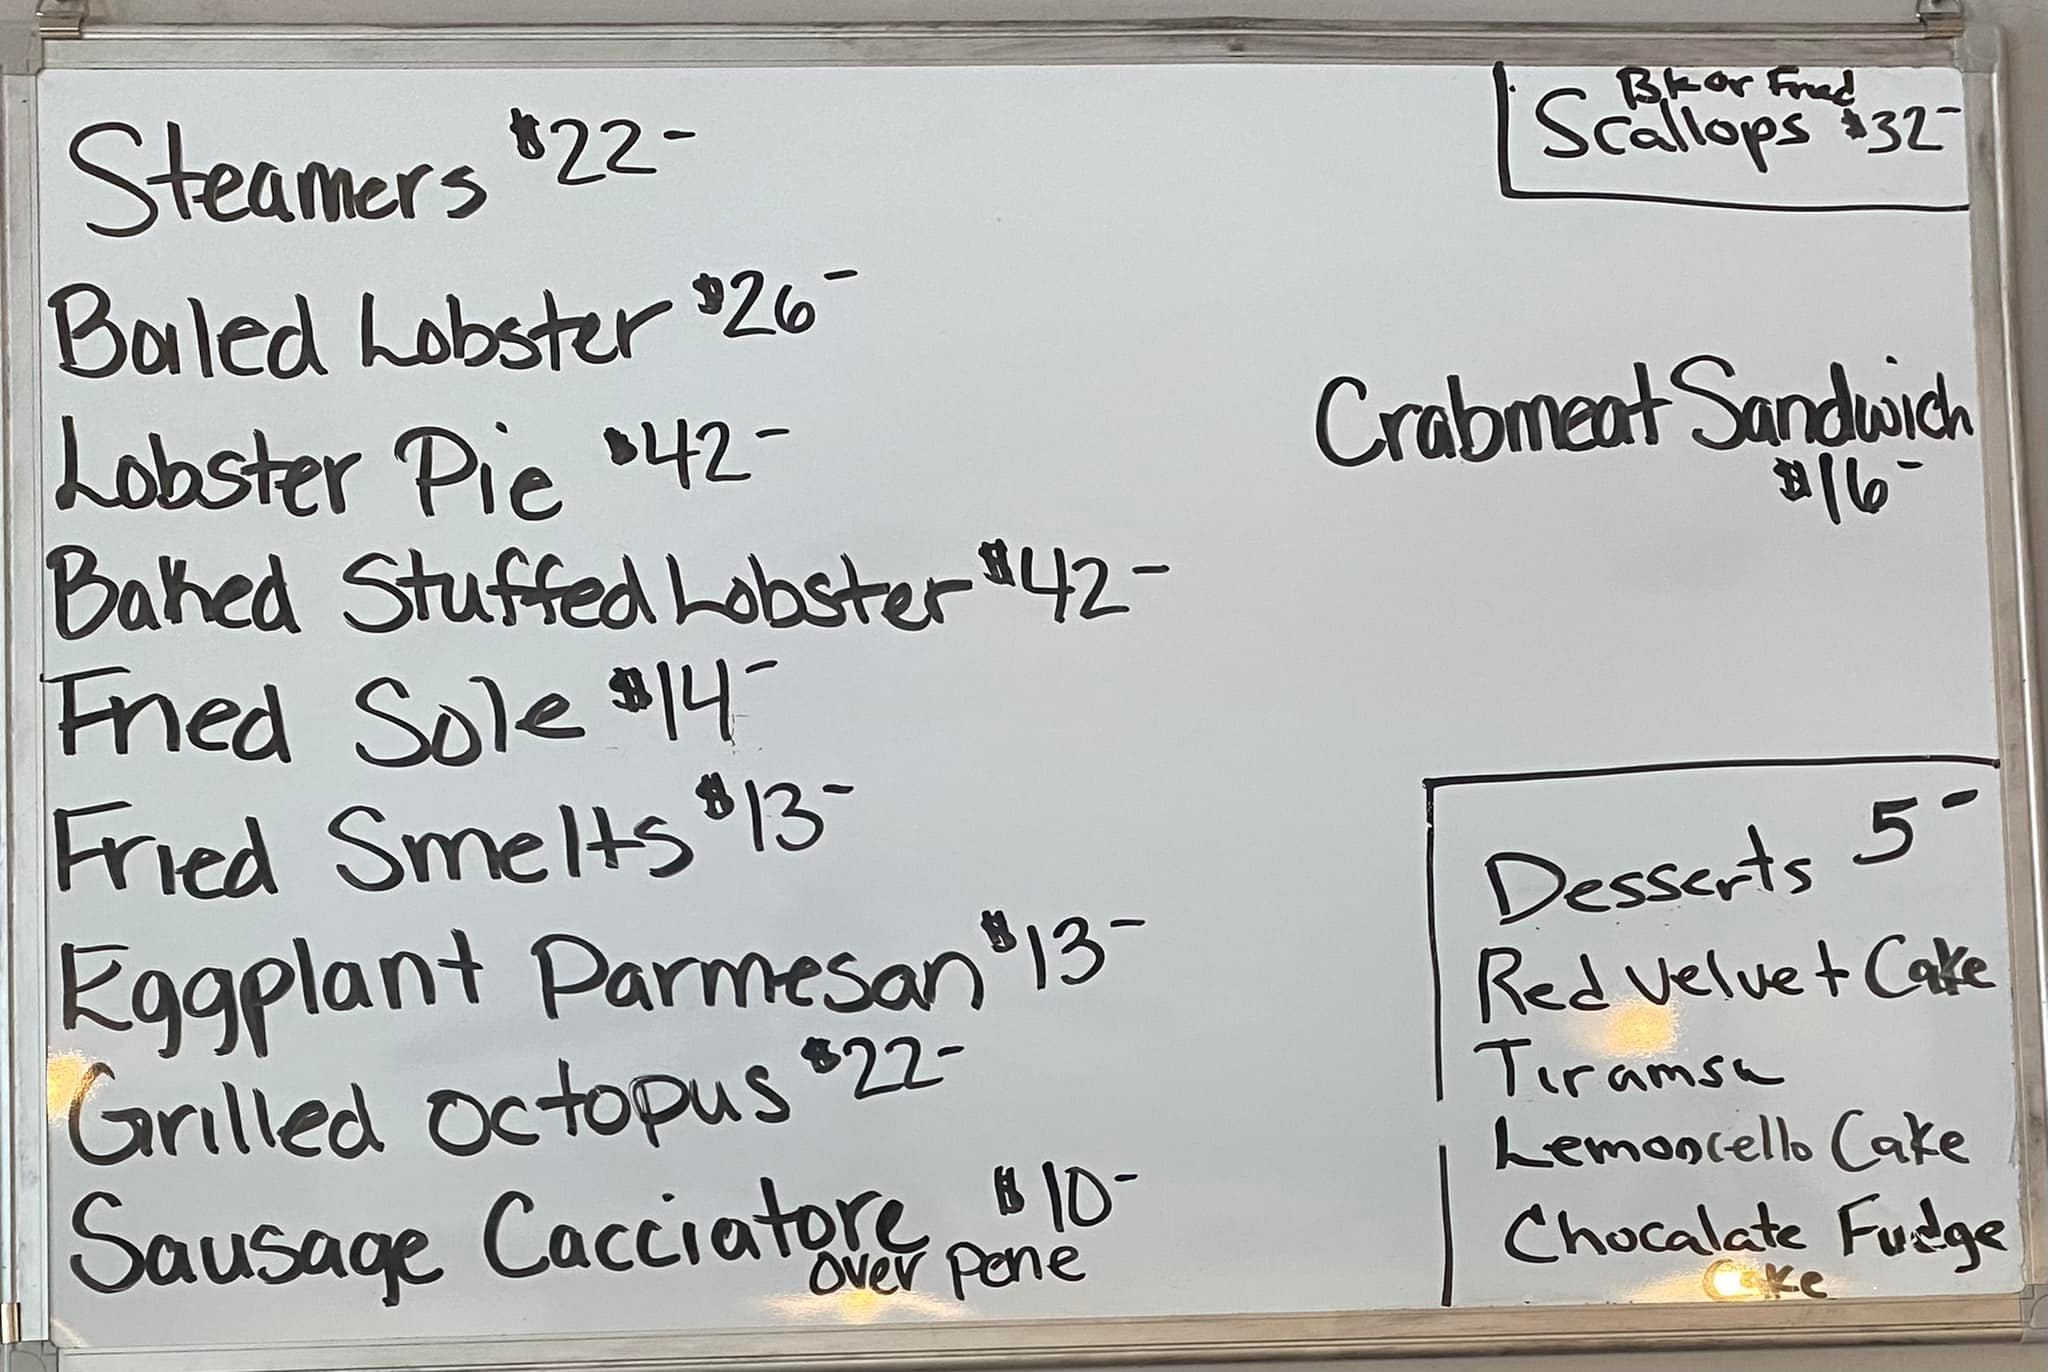 Steamers $22-
Boiled Lobster $26-
Lobster Pie $42-
Baked Stuffed Lobster $42-
Fried Sole $14-
Fried Smelts $13-
Eggplant Parmesan $13-
Grilled Octopus $22-
Sausage Cacciatore $10-
over pene
Bk or Fried
Scallops $32-
Crabmeat Sandwich
$16-
Desserts 5-
Red Velvet Cake
Tiramsu
Lemoncello Cake
Chocalate Fudge
Cake